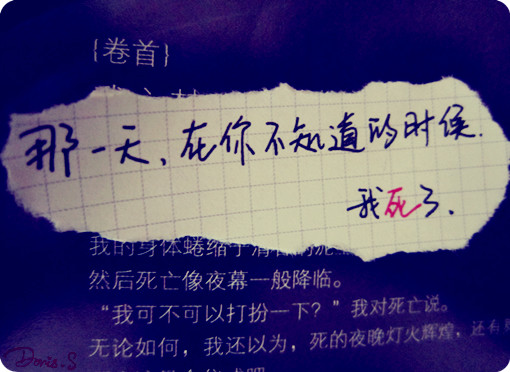 {卷首}
那一天、在你不知道的时候.
我死了.
我的身体蜷缩于
然后死亡像夜幕一般降临。
“我可不可以打扮一下？”我对死亡说。
无论如何，我还以为，死的夜晚灯火辉煌，还有
Doris.S